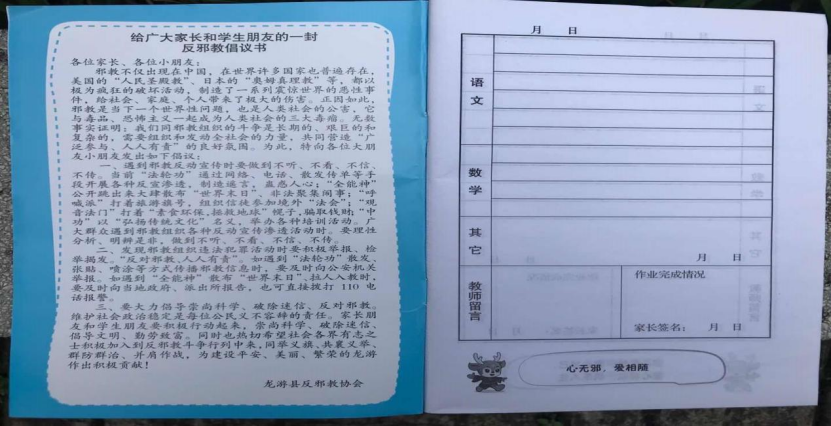 给广大家长和学生朋友的一封
反邪教倡议书
各位家长、各位小朋友：
邪教不仅出现在中国，在世界许多国家也普遍存在，
美国的“人民圣殿教”、日本的“奥姆真理教”等，都以
极为疯狂的破坏活动，制造了一系列震惊世界的恶性事
件，给社会、家庭、个人带来了极大的伤害。正因如此，
邪教是当下一个世界性问题，也是人类社会的公害，它
与毒品、恐怖主义一起成为人类社会的三大毒瘤。无数
事实证明：我们同邪教组织的斗争是长期的、艰巨的和
复杂的，需要组织和发动全社会的力量，共同营造“广
泛参与、人人有责”的良好氛围。为此，特向各位大朋
友小朋友发出如下倡议：
一、遇到邪教反动宣传时要做到不听、不看、不信、
不传。当前“法轮功”通过网络、电话、散发传单等手
段开展各种反宣渗透，制造谣言，蛊惑人心；“全能神”
公开跳出来大肆散布“世界末日”，非法聚集闹事；“呼
喊派”打着旅游旗号，组织信徒参加境外“法会”；“观
音法门”打着“素食环保，拯救地球”幌子，骗取钱财；“中
功”以“弘扬传统文化”名义，举办各种培训活动。广
大群众遇到邪教组织各种反动宣传渗透活动时。要理性
分析、明辨是非，做到不听、不看、不信、不传。
二、发现邪教组织违法犯罪活动时要积极举报、检
举揭发。“反对邪教、人人有责”。如遇到“法轮功”散发、
张贴、喷涂等方式传播邪教信息时，要及时向公安机关
举报。如遇到“全能神”散布“世界末日”、拉人入教时，
要及时向当地政府、派出所报告，也可直接拨打 110 电
话报警。
三、要大力倡导崇尚科学、破除迷信、反对邪教。
维护社会政治稳定是每位公民义不容辞的责任。家长朋
友和学生朋友要积极行动起来，崇尚科学、破除迷信、
倡导文明、勤劳致富。同时也热切希望社会各界有志之
士积极加入到反邪教斗争行列中来，同举义旗、共襄义举、
群防群治、并肩作战，为建设平安、美丽、繁荣的龙游
作出积极贡献！
龙游县反邪教协会
月 日
语文
数学
其它
月 日
教师留言
作业完成情况
家长签名： 月 日
心无邪，爱相随